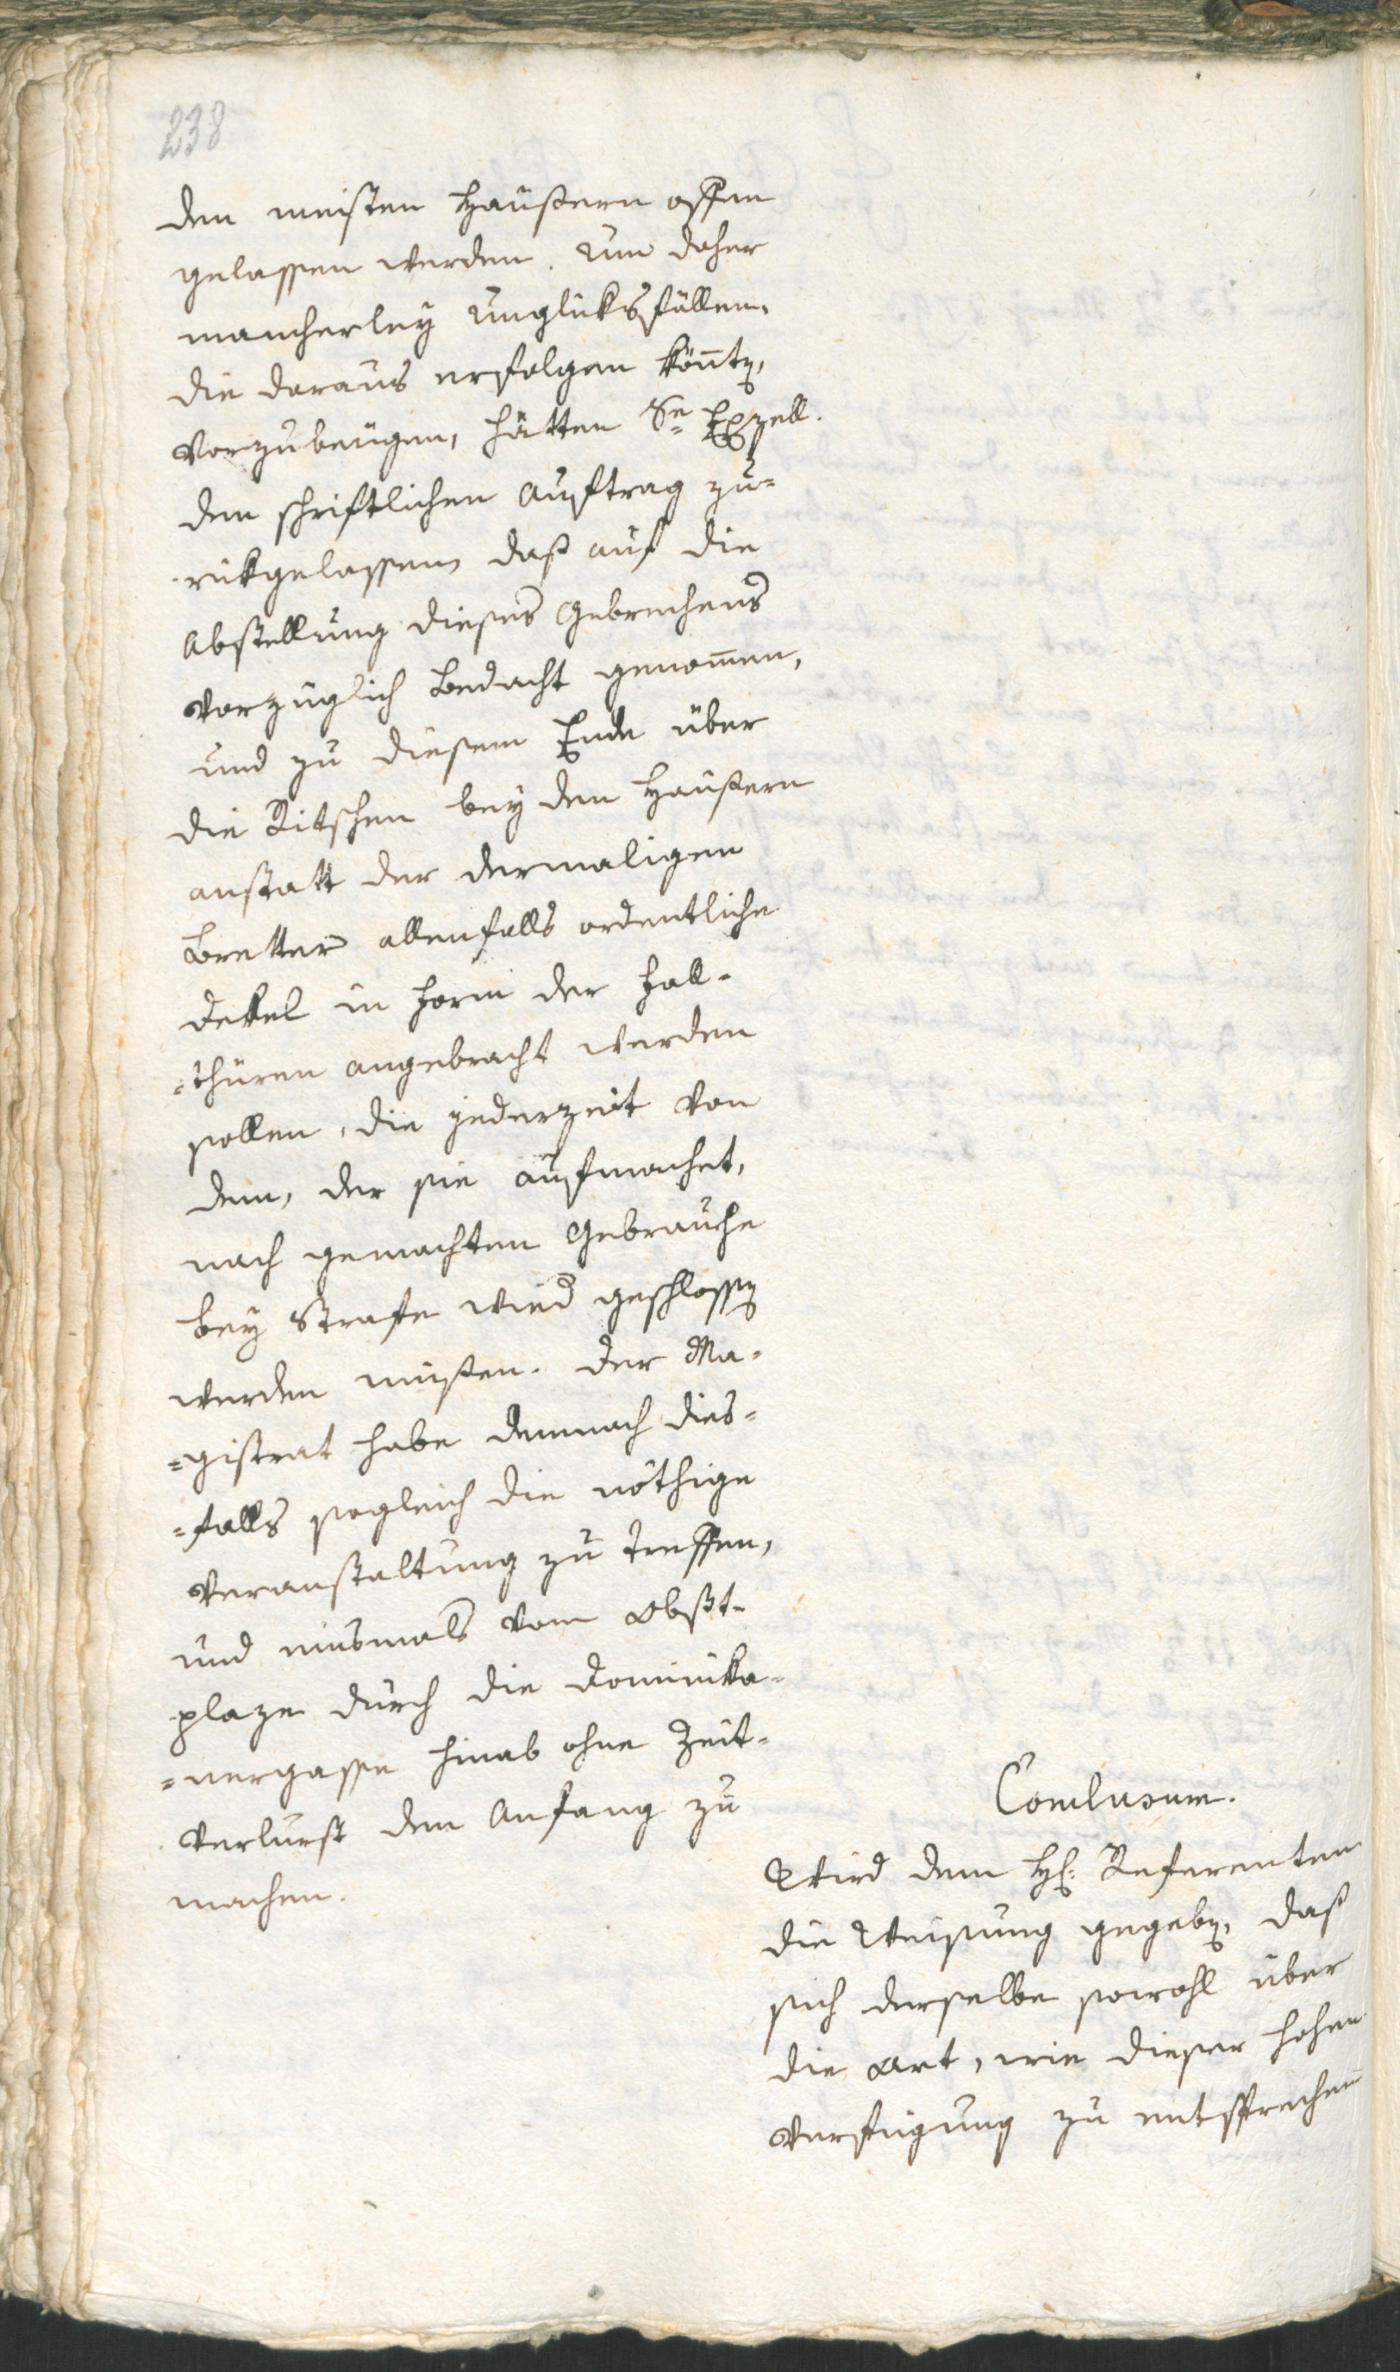 238
den meisten Häußern offen
gelassen werden. Um daher
mancherley Unglüksfällen,
die daraus erfolgen könnten,
vorzubeugen, hätten Se Exzell.
den schriftlichen Auftrag zu=
rükgelassen, daß auf die
Abstellung dieses Gebrechens
vorzüglich Bedacht genom̅en,
und zu diesem Ende über
die Ritschen bey den Häußern
anstatt der dermaligen
Bretter allenfalls ordentliche
Dekel in Form der Fall-
=thüren angebracht werden
sollen, die jederzeit von
dem, der sie aufmachet,
nach gemachten Gebrauche
bey Strafe wied geschlossen
werden müßen. Der Ma-
=gistrat habe demnach dies=
=falls sogleich die nöthige
Veranstaltung zu treffen,
und einsmals vom Obst-
plaze durch die Dominika-
=nergasse hinab ohne Zeit-
verlurst den Anfang zu
machen.
Conclusum.
Wird dem H: Referenten
die Weisung gegeben, daß
sich derselbe sowohl über
die Art, wie dieser hohen
Verfügung zu entsprechen